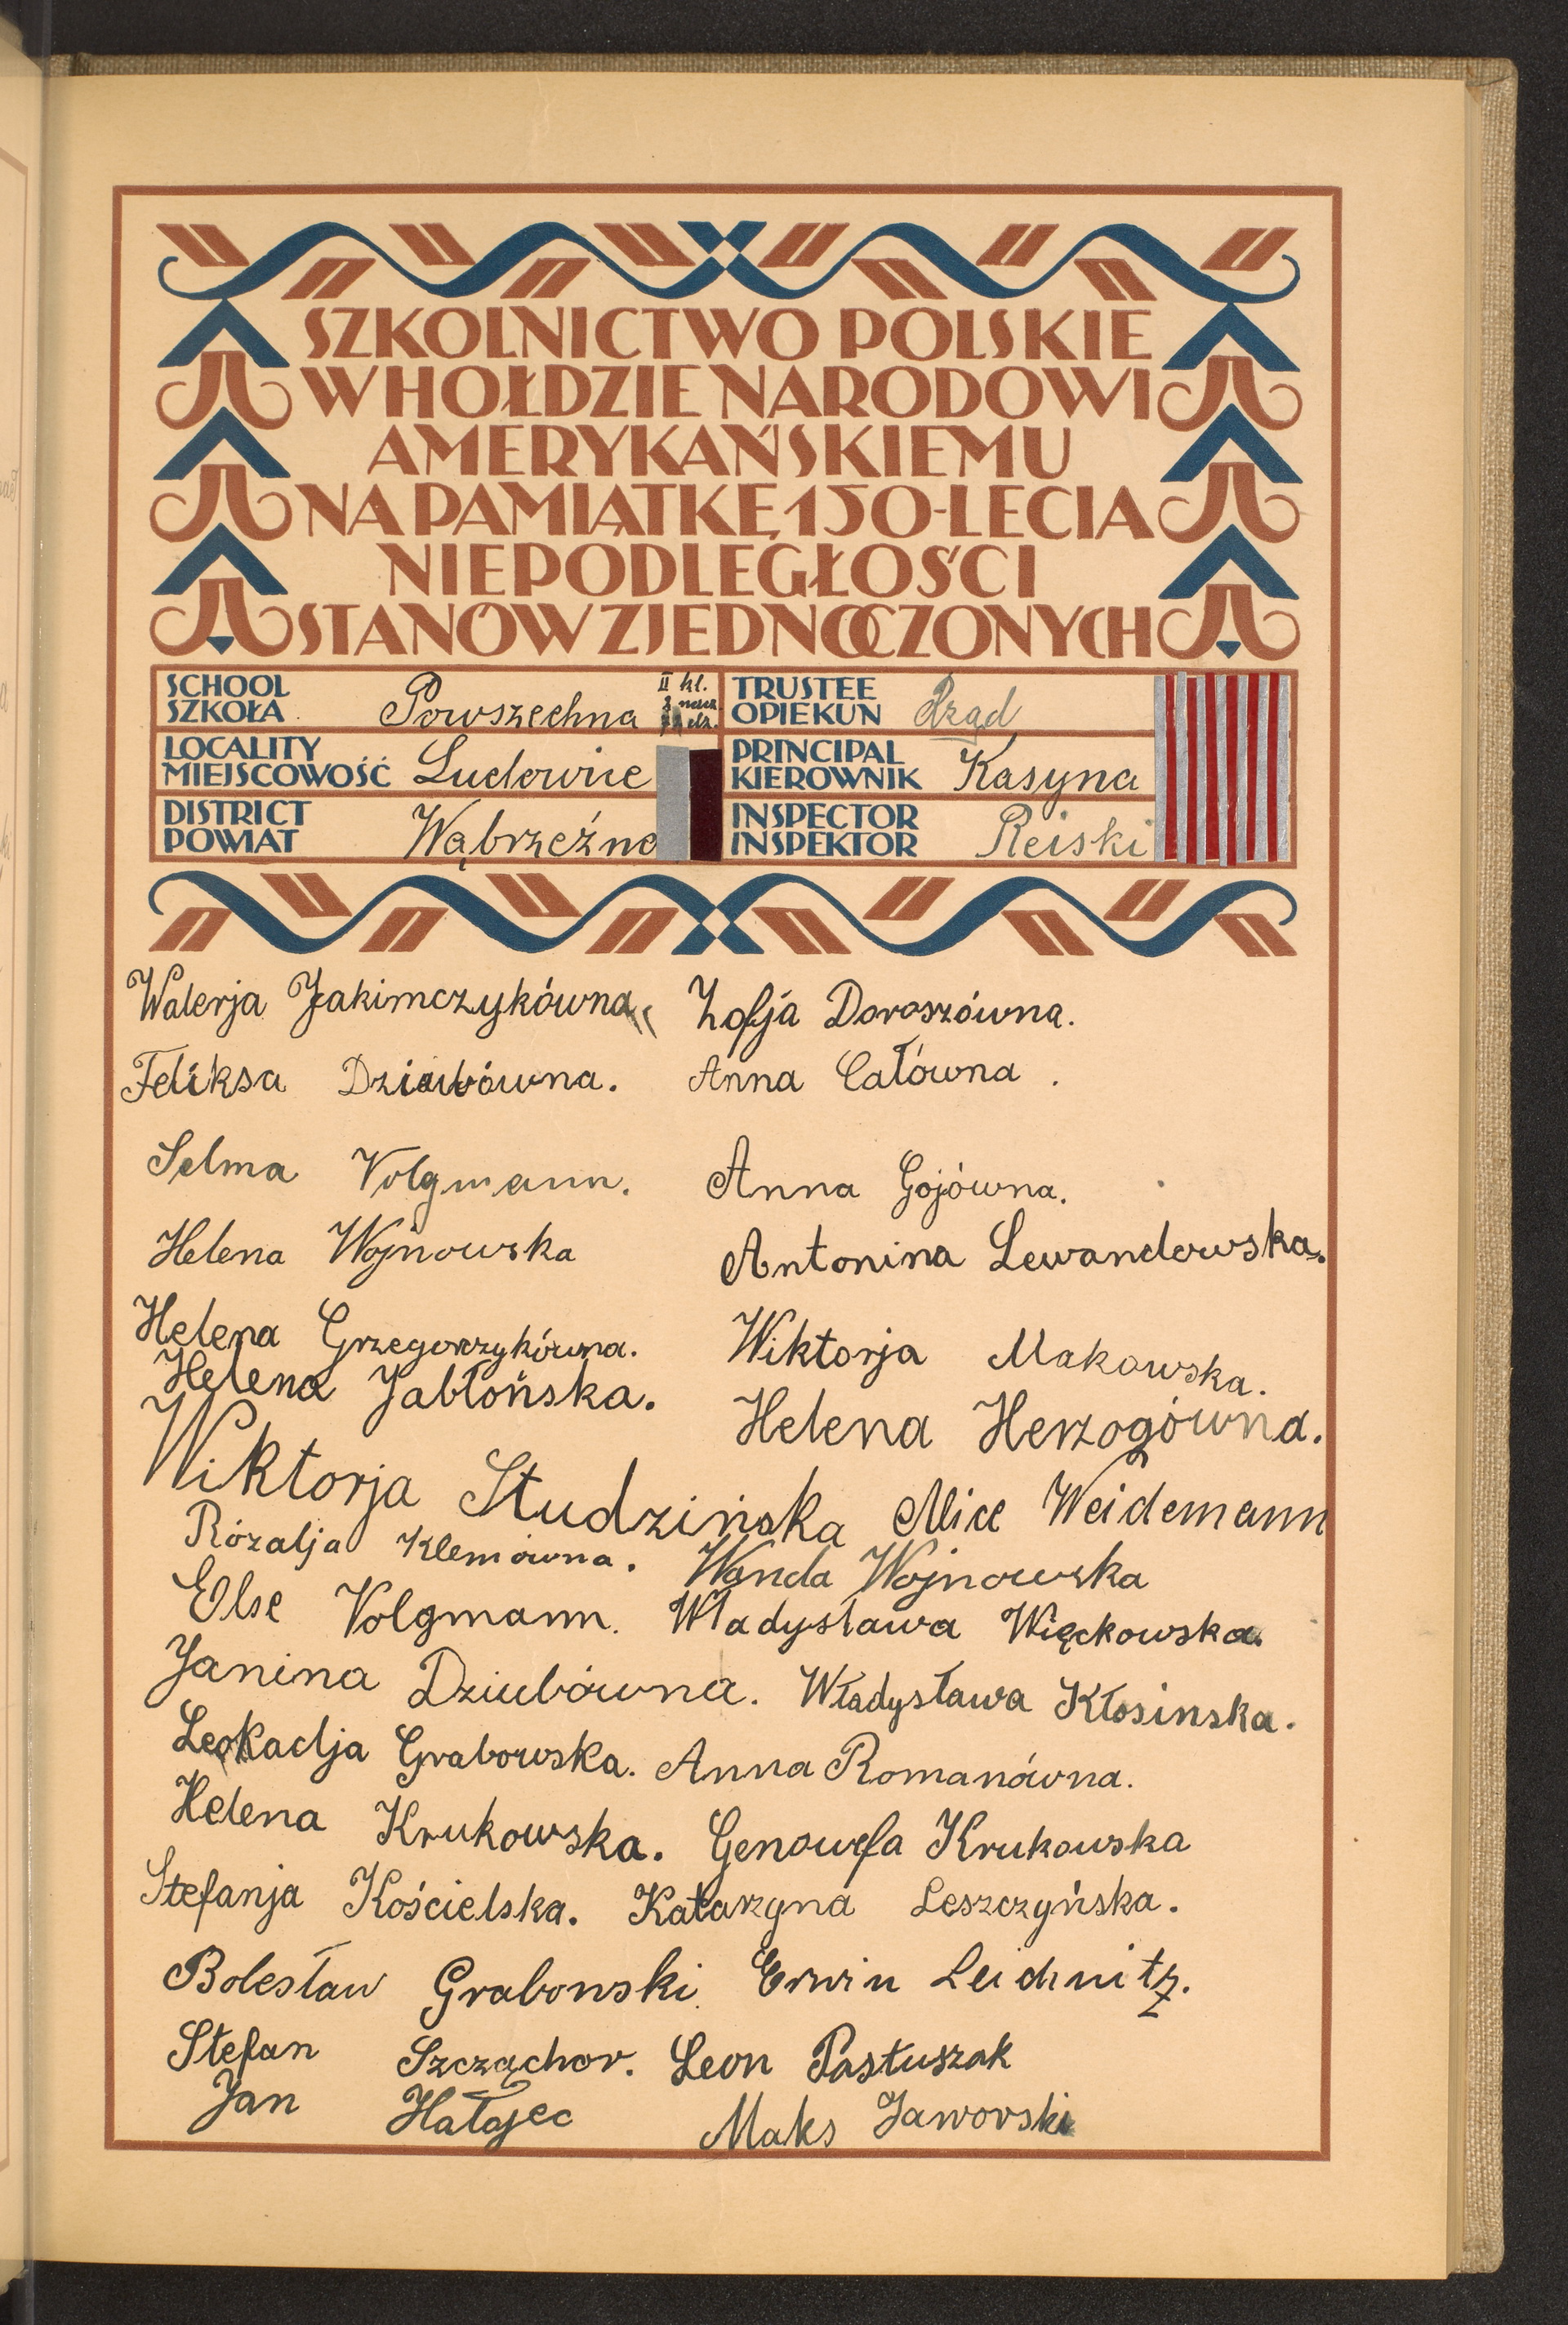 SZKOLNICTWO POLSKIE
W HOŁDZIE NARODOWI
AMERYKAŃSKIEMU
NA PAMIĄTKĘ 150-LECIA
NIEPODLEGŁOŚCI
STANÓW ZJEDNOCZONYCH
SCHOOL
SZKOŁA Powszechna II kl.
TRUSTEE
OPIEKUN Rząd
LOCALITY
MIEJSCOWOŚĆ Ludowice
PRINCIPAL
KIEROWNIK Kasyna
DISTRICT
POWIAT Wąbrzeźno
INSPECTOR
INSPEKTOR Reiski
Walerja Jakimczykówna Zofja Doroszówna.
Feliksa Dziubówna. Anna Całówna.
Selma Volgmann. Anna Gojówna.
Helena Wojnowska Antonina Lewandowska.
Helena Grzegorzykówna. Wiktorja Makowska.
Helena Jabłońska. Helena Herzogówna.
Wiktorja Studzińska Alice Weidemann
Rózalja Klemówna. Wanda Wojnowska
Else Volgmann. Władysława Więckowska.
Janina Dziubówna. Władysława Kłosinska.
Leokadja Grabowska. Anna Romanówna.
Helena Krukowska. Genowefa Krukowska
Stefanja Kościelska. Katarzyna Leszczyńska.
Bolesław Grabowski Erwin Leichnitz.
Stefan Szcząchor. Leon Pastuszak
Jan Hałajec Maks Jaworski